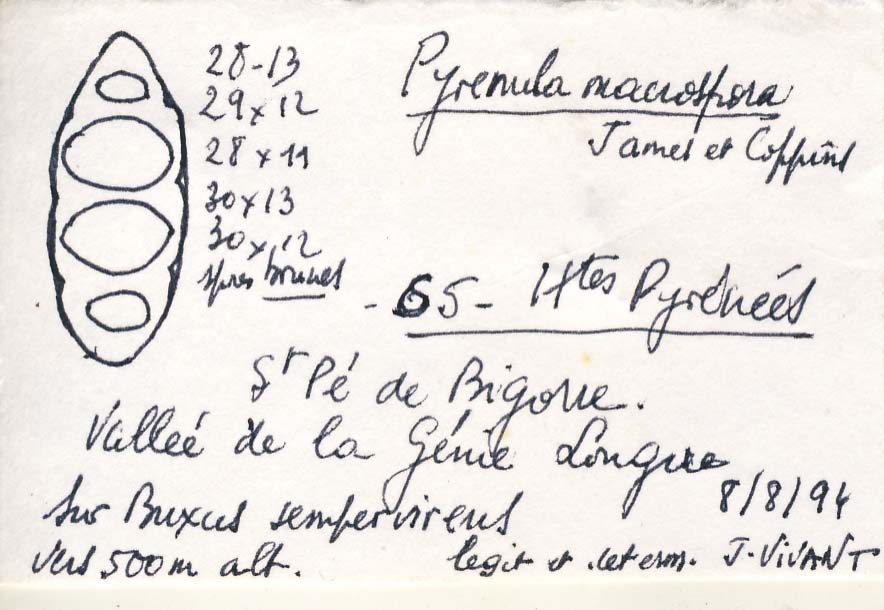 28-13
29 x 12
28 x 11
30 x 13
30 x 12
spores brunes
Pyrenula macrospora
James et Coppins
- 65 - Htes Pyrénées
St Pé de Bigorre.
Vallée de la Génie Longue
8/8/94
sur Buxus sempervirens
vers 500m alt.
legit et determ. J. VIVANT